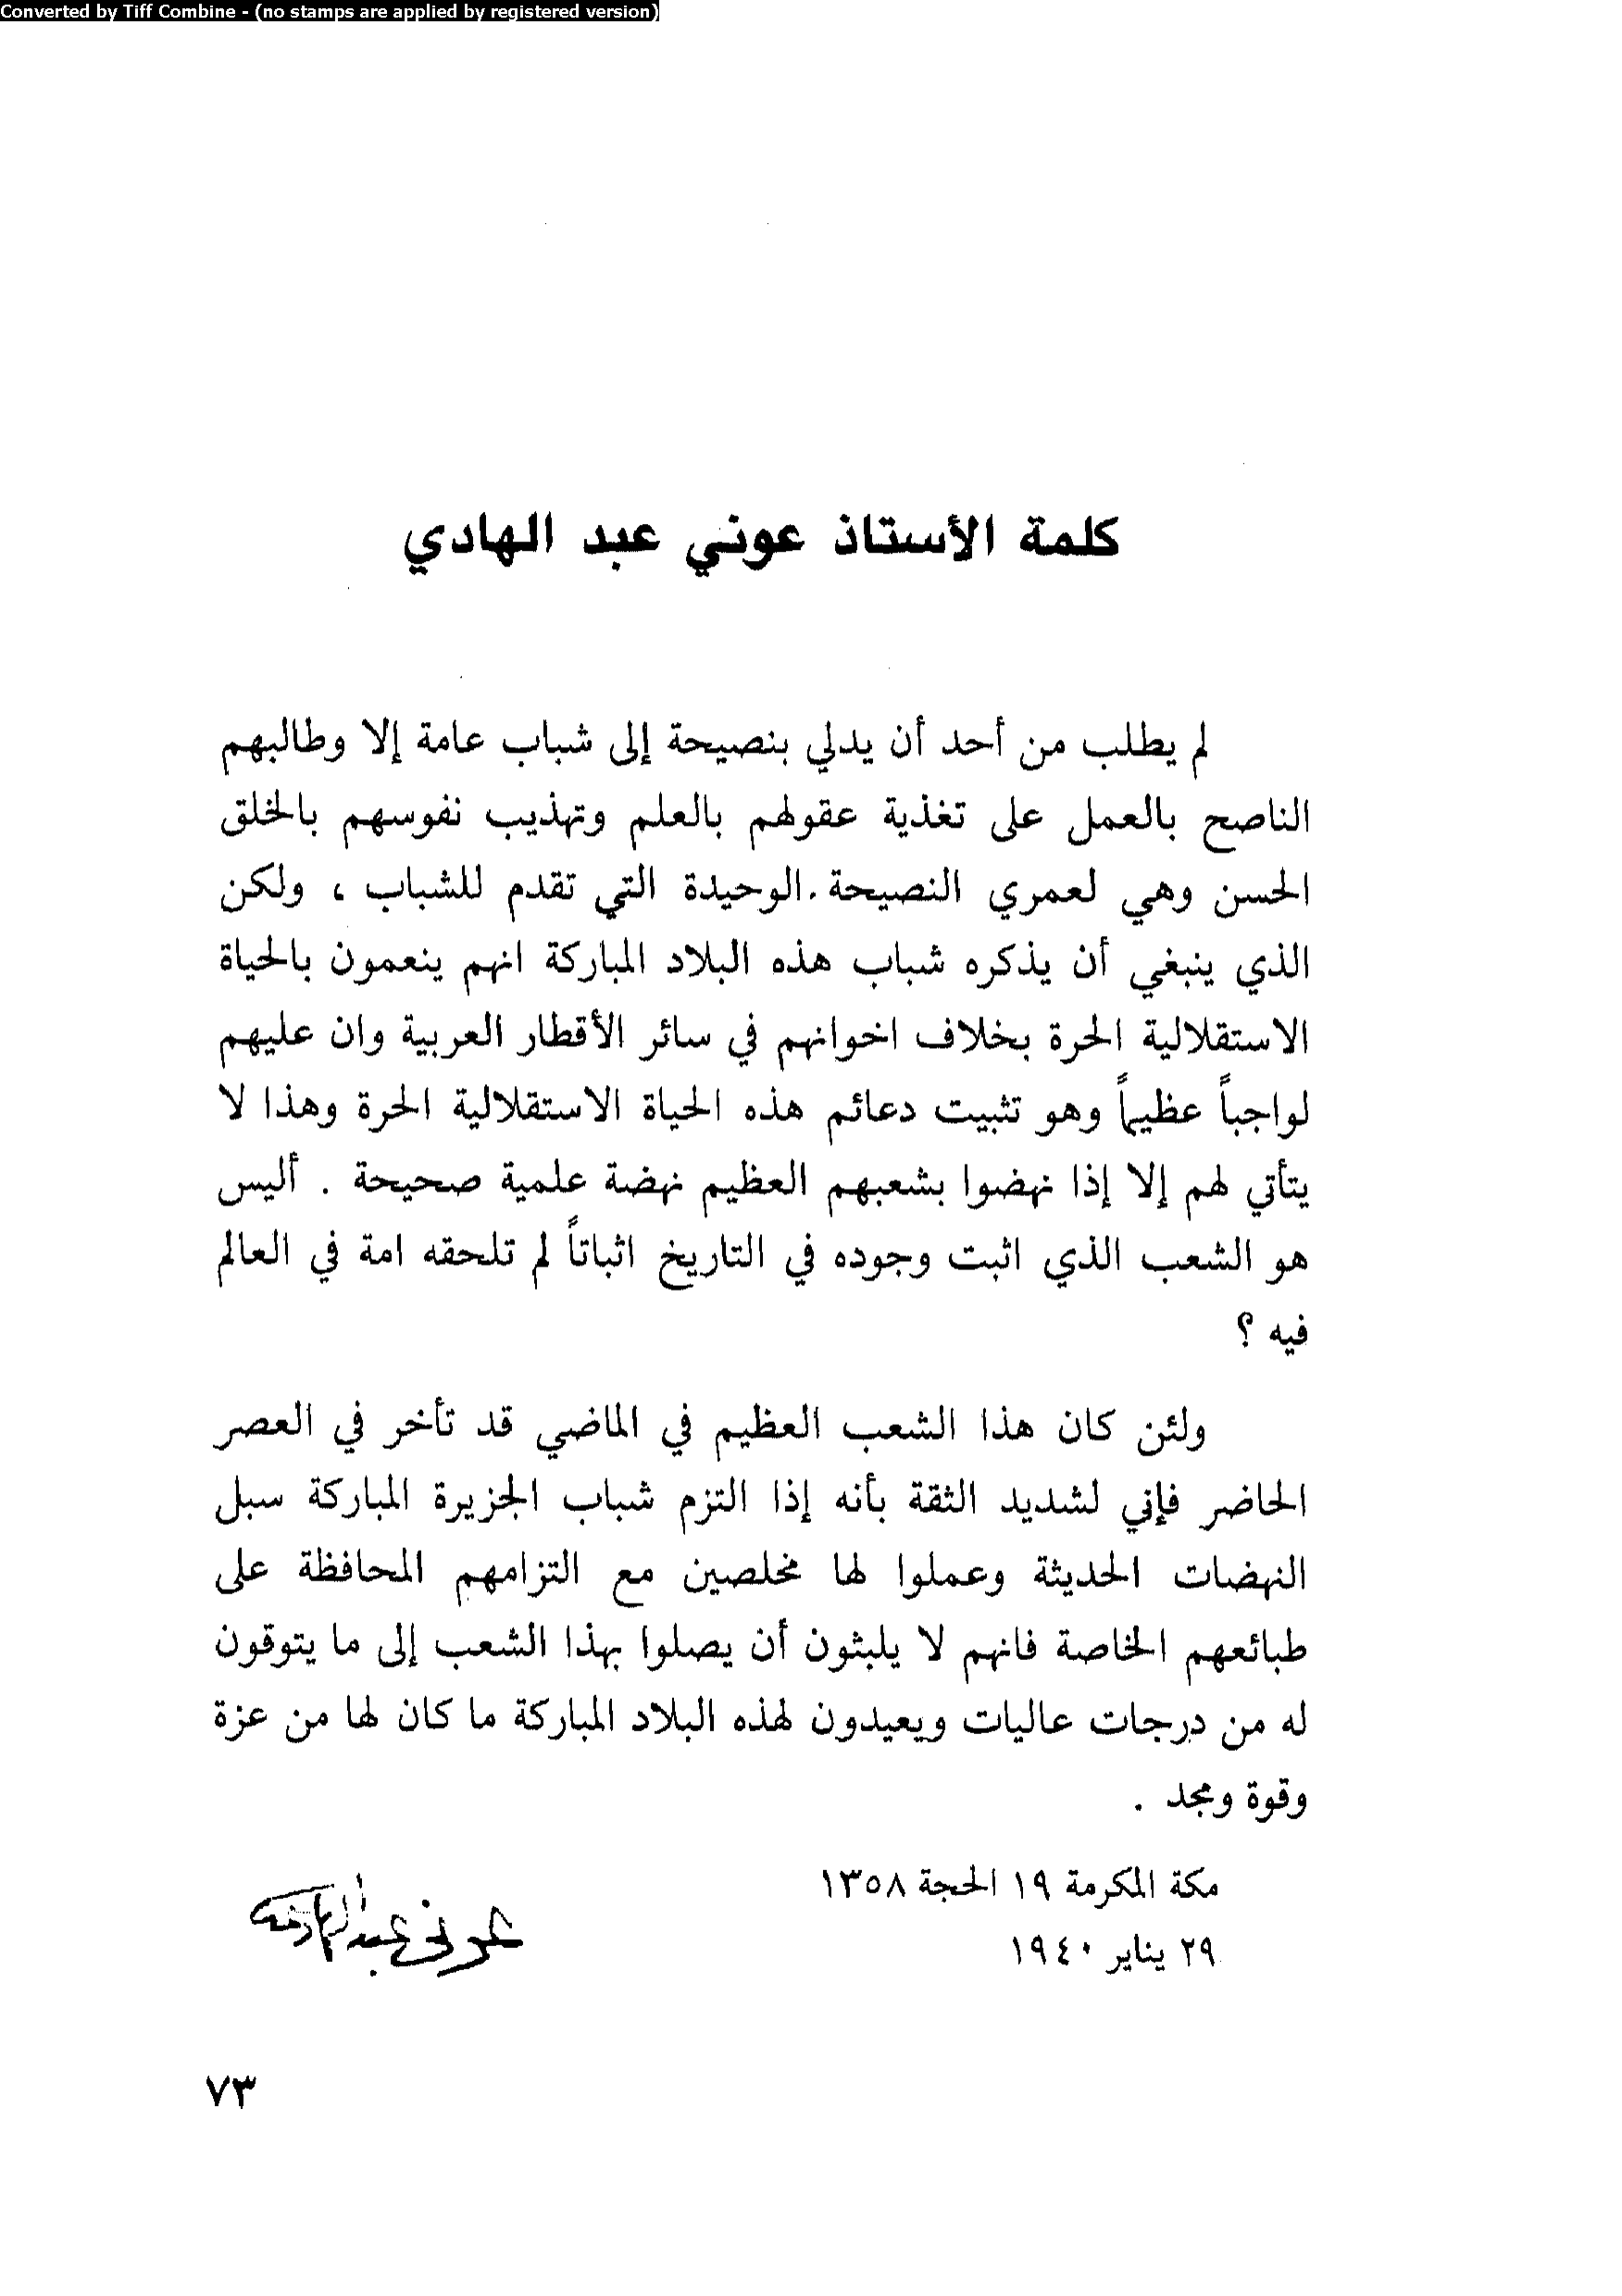 Converted by Tiff Combine - (no stamps are applied by registered version)
كلمة الأستاذ عوني عبد الهادي
لم يطلب من أحد أن يدلي بنصيحة إلى شباب عامة إلا وطالبهم
الناصح بالعمل على تغذية عقولهم بالعلم وتهذيب نفوسهم بالخلق
الحسن وهي لعمري النصيحة .الوحيدة التي تقدم للشباب ، ولكن
الذي ينبغي أن يذكره شباب هذه البلاد المباركة انهم ينعمون بالحياة
الاستقلالية الحرة بخلاف اخوانهم في سائر الأقطار العربية وان عليهم
لواجباً عظيماً وهو تثبيت دعائم هذه الحياة الاستقلالية الحرة وهذا لا
يتأتي لهم إلا إذا نهضوا بشعبهم العظيم نهضة علمية صحيحة . أليس
هو الشعب الذي اثبت وجوده في التاريخ اثباتاً لم تلحقه امة في العالم
فيه ؟
ولئن كان هذا الشعب العظيم في الماضي قد تأخر في العصر
الحاضر فإني لشديد الثقة بأنه إذا التزم شباب الجزيرة المباركة سبل
النهضات الحديثة وعملوا لها مخلصين مع التزامهم المحافظة على
طبائعهم الخاصة فانهم لا يلبثون أن يصلوا بهذا الشعب إلى ما يتوقون
له من درجات عاليات ويعيدون لهذه البلاد المباركة ما كان لها من عزة
وقوة ومجد .
مكة المكرمة ١٩ الحجة ١٣٥٨
٢٩ يناير ١٩٤٠
عوني عبد الهادي
٧٣